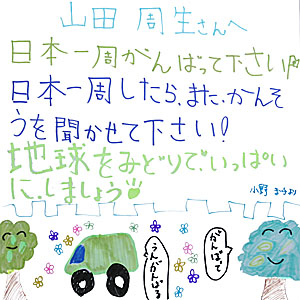 山田 周生さんへ
日本一周がんばって下さい!!
日本一周したら、また、かんそ
うを聞かせて下さい!
地球をみどりで、いっぱい
に、しましょう
小野 より
がんばって
うん、がんばる